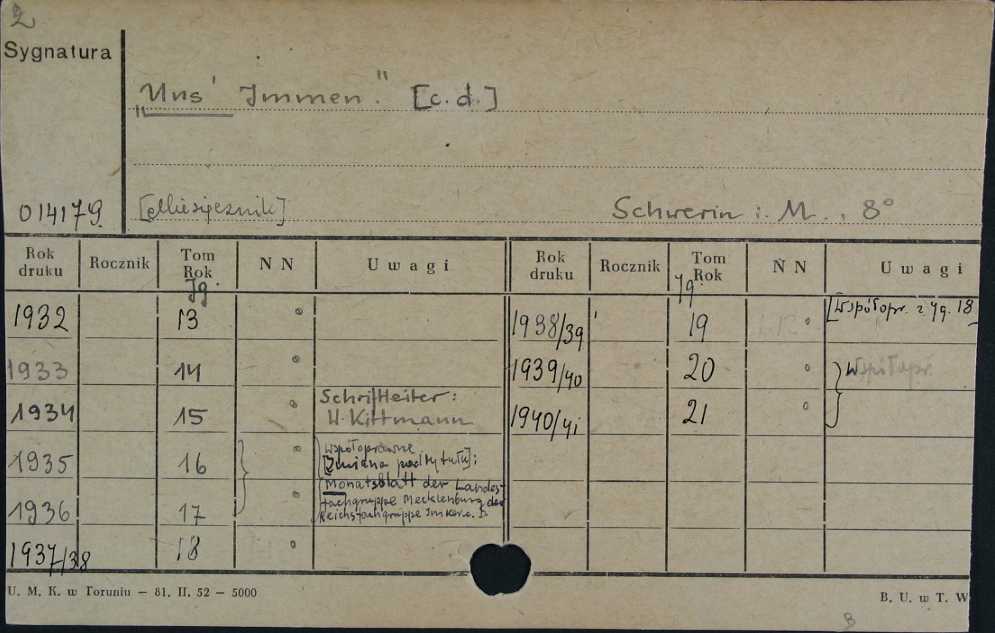 2
Sygnatura
„Uns' Immen." [c.d.]
014179
[Miesięcznik]
Schwerin i. M., 8°
Rok druku Rocznik Tom Rok NN Uwagi Rok druku Rocznik Tom Rok NN Uwagi
Jg. Jg.
1932 13 ° 1938/39 19 ° [Współopr. z Jg. 18
1933 14 ° 1939/40 20 ° Współopr.
1934 15 ° Schriftleiter: W. Kittmann 1940/41 21 °
1935 16 ° Współoprawne
[Zmiana podtytułu]:
Monatsblatt der Landes-
1936 17 ° fachgruppe Mecklenburg der
Reichsfachgruppe Imker e.
1937/38 18 °
U. M. K. w Toruniu — 81. II. 52 — 5000
B. U. w T. W
B